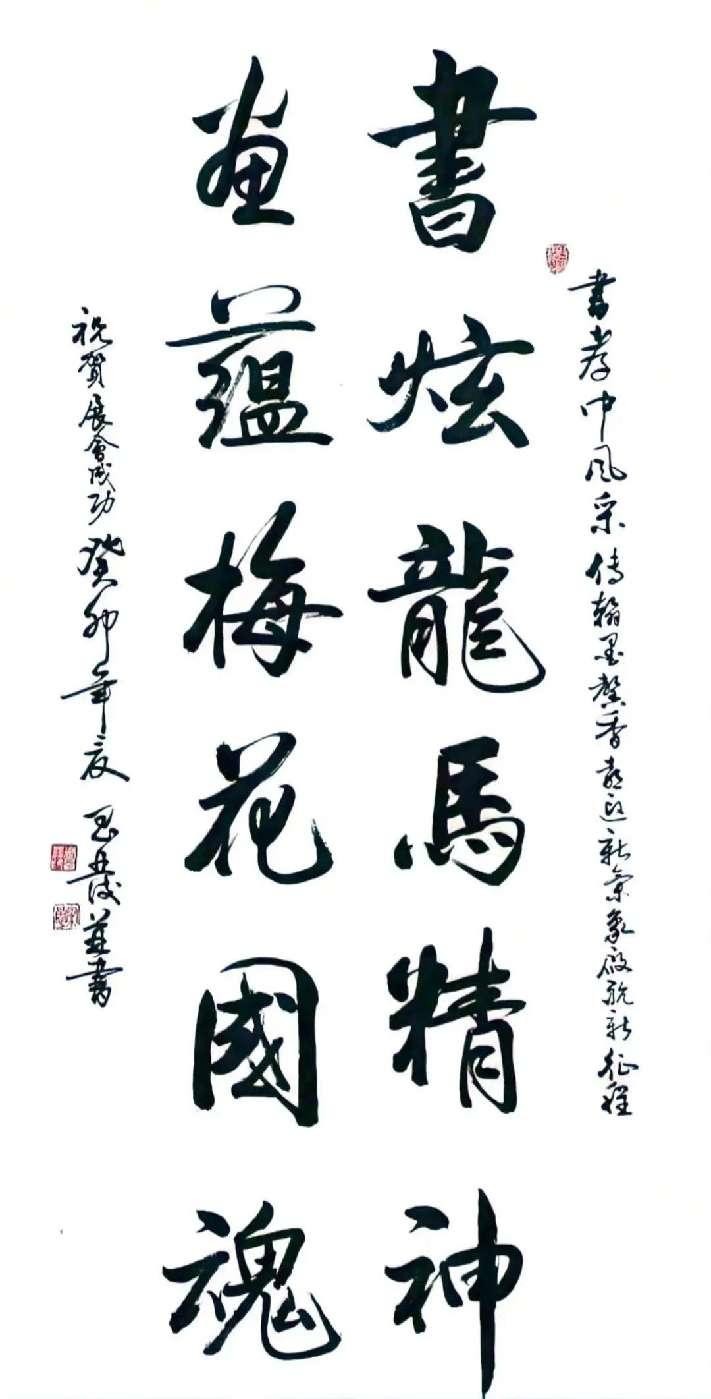 書孝中風采傳翰墨馨香喜迎新氣象啟航新征程
書炫龍馬精神
画蘊梅花國魂
祝賀展會成功癸卯年夏
並書